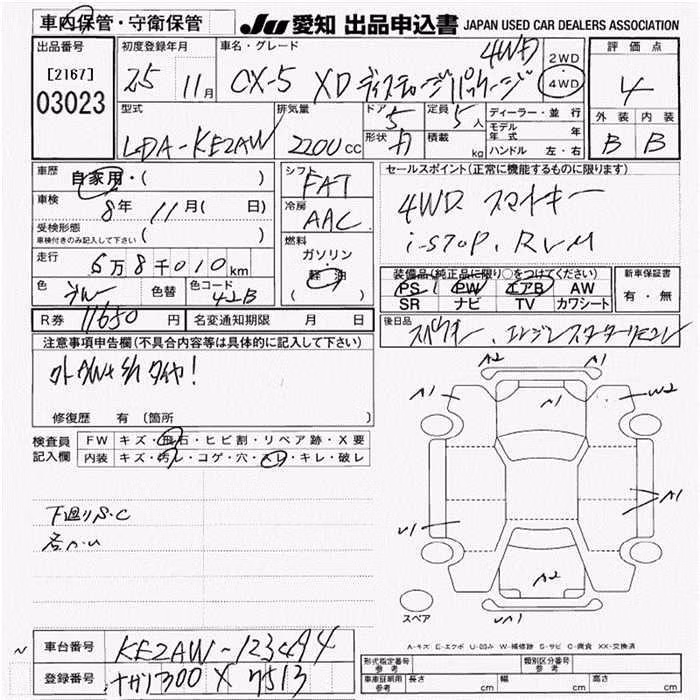 車内保管・守衛保管
JU 愛知 出品申込書 JAPAN USED CAR DEALERS ASSOCIATION
出品番号
[2167]
03023
初度登録年月
25 11月
車名・グレード
CX-5 XD ディスチャージパッケージ
4WD
2WD
・
4WD
評価点
4
外装 内装
B B
型式
LDA-KE2AW
排気量
2200 CC
ドア
5
形状
定員
5 人
積載
kg
ディーラー・並行
モデル年式 年
ハンドル 左・右
車歴
自家用・( )
車検
8年 11月( 日)
受検形態
車検付きのみ記入して下さい ( )
走行
5万8千010km
色
色替
色コード
42B
シフト
FAT
冷房
AAC
燃料
ガソリン
・
軽油
( )
セールスポイント(正常に機能するものに限ります)
4WD スマートキー
i-STOP. RVM
装備品(純正品に限り○をつけてください)
PS PW エアB AW
SR ナビ TV カワシート
新車保証書
有・無
R券 11650 円
名変通知期限 月 日
後日品
注意事項申告欄(不具合内容等は具体的に記入して下さい)
修復歴 有 (箇所
検査員記入欄
FW キズ・飛石・ヒビ割・リペア跡・X要
内装 キズ・汚レ・コゲ・穴・スレ・キレ・破レ
下廻りS.C
A2
A1
A1
A1
W2
A1
U1
A2
UA1
スペア
A-キズ E-エクボ U-凹み W-補修跡 S-サビ C-腐食 XX-交換済
車台番号
KE2AW-123494
登録番号
7513
形式指定番号
参考
類別区分番号
参考
車庫証明用
参考
長さ cm
幅 cm
高さ cm